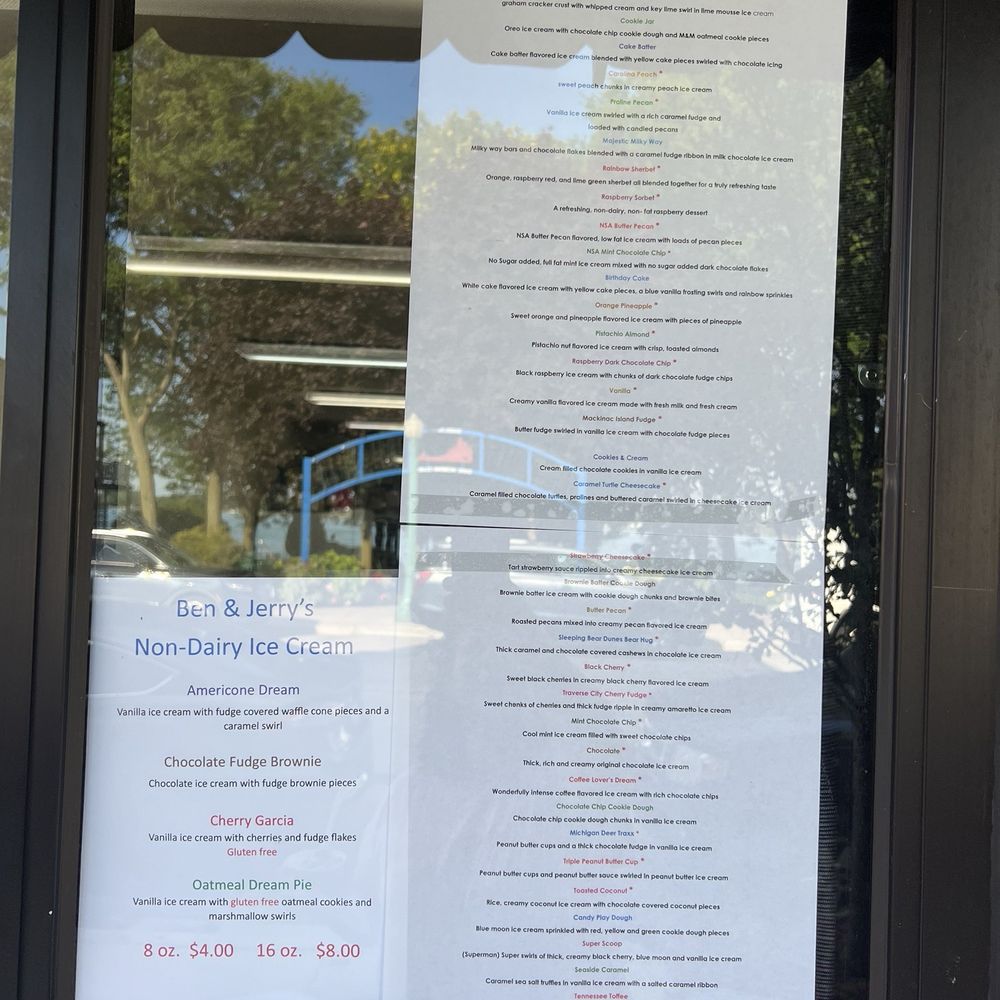 graham cracker crust with whipped cream and key lime swirl in lime mousse ice cream
Cookie Jar
Oreo ice cream with chocolate chip cookie dough and M&M oatmeal cookie pieces
Cake Batter
Cake batter flavored ice cream blended with yellow cake pieces swirled with chocolate icing
Carolina Peach *
sweet peach chunks in creamy peach ice cream
Praline Pecan *
Vanilla ice cream swirled with a rich caramel fudge and
loaded with candied pecans
Majestic Milky Way
Milky way bars and chocolate flakes blended with a caramel fudge ribbon in milk chocolate ice cream
Rainbow Sherbet *
Orange, raspberry red, and lime green sherbet all blended together for a truly refreshing taste
Raspberry Sorbet *
A refreshing, non-dairy, non- fat raspberry dessert
NSA Butter Pecan *
NSA Butter Pecan flavored, low fat ice cream with loads of pecan pieces
NSA Mint Chocolate Chip *
No Sugar added, full fat mint ice cream mixed with no sugar added dark chocolate flakes
Birthday Cake
White cake flavored ice cream with yellow cake pieces, a blue vanilla frosting swirls and rainbow sprinkles
Orange Pineapple *
Sweet orange and pineapple flavored ice cream with pieces of pineapple
Pistachio Almond *
Pistachio nut flavored ice cream with crisp, toasted almonds
Raspberry Dark Chocolate Chip *
Black raspberry ice cream with chunks of dark chocolate fudge chips
Vanilla *
Creamy vanilla flavored ice cream made with fresh milk and fresh cream
Mackinac Island Fudge *
Butter fudge swirled in vanilla ice cream with chocolate fudge pieces
Cookies & Cream
Cream filled chocolate cookies in vanilla ice cream
Caramel Turtle Cheesecake *
Caramel filled chocolate turtles, pralines and buttered caramel swirled in cheesecake ice cream
Strawberry Cheesecake *
Tart strawberry sauce rippled into creamy cheesecake ice cream
Brownie Batter Cookie Dough
Brownie batter ice cream with cookie dough chunks and brownie bites
Butter Pecan *
Roasted pecans mixed into creamy pecan flavored ice cream
Sleeping Bear Dunes Bear Hug *
Thick caramel and chocolate covered cashews in chocolate ice cream
Black Cherry *
Sweet black cherries in creamy black cherry flavored ice cream
Traverse City Cherry Fudge *
Sweet chunks of cherries and thick fudge ripple in creamy amaretto ice cream
Mint Chocolate Chip *
Cool mint ice cream filled with sweet chocolate chips
Chocolate *
Thick, rich and creamy original chocolate ice cream
Coffee Lover's Dream *
Wonderfully intense coffee flavored ice cream with rich chocolate chips
Chocolate Chip Cookie Dough
Chocolate chip cookie dough chunks in vanilla ice cream
Michigan Deer Traxx *
Peanut butter cups and a thick chocolate fudge in vanilla ice cream
Triple Peanut Butter Cup *
Peanut butter cups and peanut butter sauce swirled in peanut butter ice cream
Toasted Coconut *
Rice, creamy coconut ice cream with chocolate covered coconut pieces
Candy Play Dough
Blue moon ice cream sprinkled with red, yellow and green cookie dough pieces
Super Scoop
(Superman) Super swirls of thick, creamy black cherry, blue moon and vanilla ice cream
Seaside Caramel
Caramel sea salt truffles in vanilla ice cream with a salted caramel ribbon
Tennessee Toffee
Ben & Jerry's
Non-Dairy Ice Cream
Americone Dream
Vanilla ice cream with fudge covered waffle cone pieces and a
caramel swirl
Chocolate Fudge Brownie
Chocolate ice cream with fudge brownie pieces
Cherry Garcia
Vanilla ice cream with cherries and fudge flakes
Gluten free
Oatmeal Dream Pie
Vanilla ice cream with gluten free oatmeal cookies and
marshmallow swirls
8 oz. $4.00 16 oz. $8.00